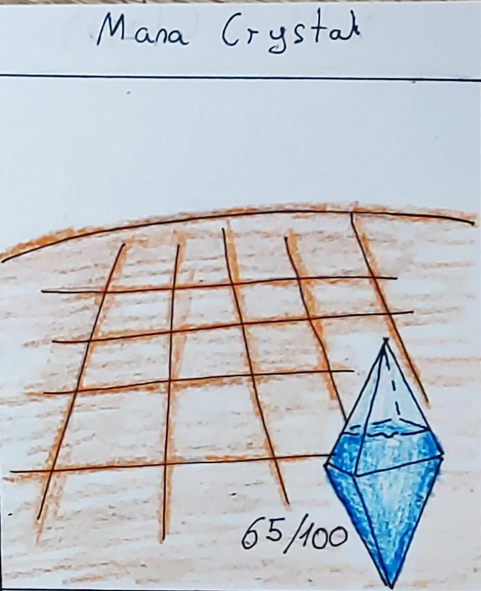 Mana Crystal
65/100